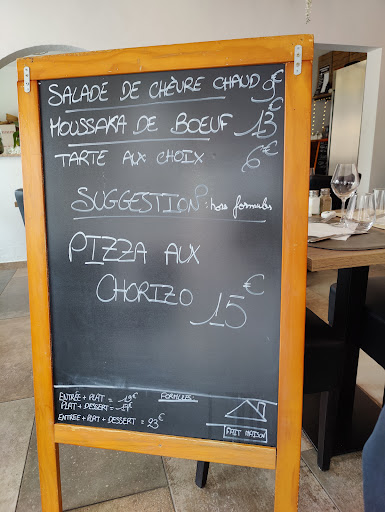 SALADE DE CHÈVRE CHAUD 9€
MOUSSAKA DE BOEUF 13€
TARTE AUX CHOIX 6€
SUGGESTION : hors formules
PIZZA AUX
CHORIZO 15€
FORMULES:
ENTRÉE + PLAT = 19€
PLAT + DESSERT =
ENTRÉE + PLAT + DESSERT = 23€
FAIT MAISON